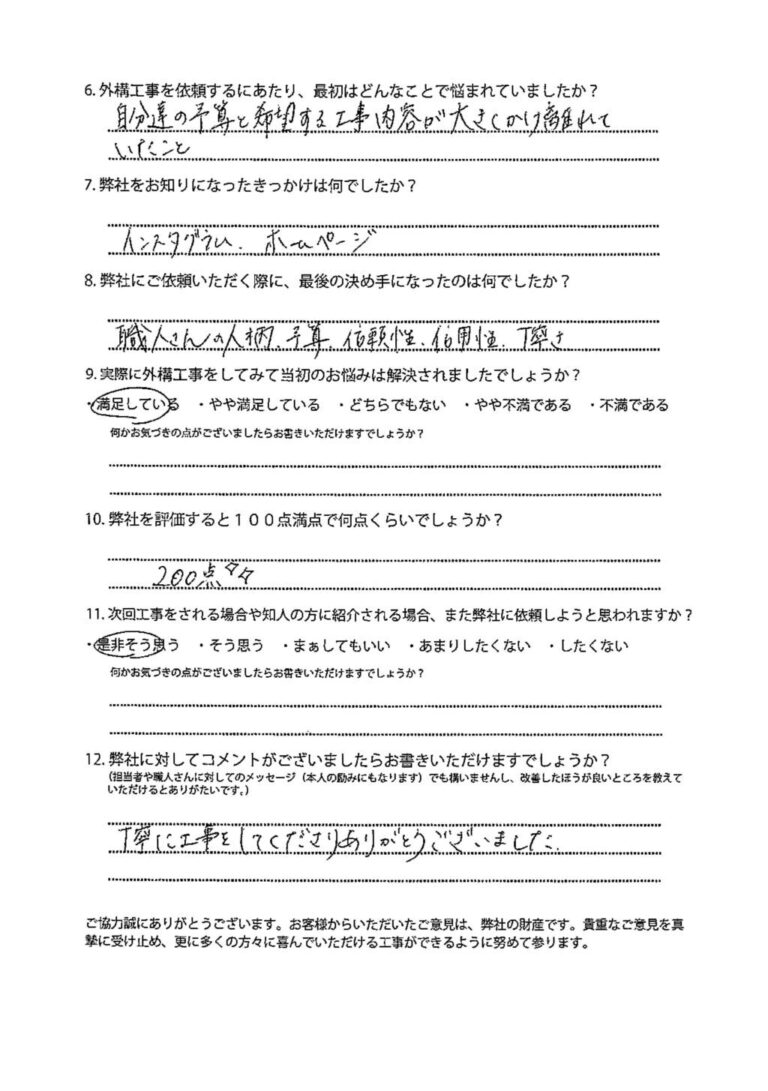 6. 外構工事を依頼するにあたり、最初はどんなことで悩まれていましたか？
自分達の予算と希望する工事内容が大きくかけ離れて
いたこと
7. 弊社をお知りになったきっかけは何でしたか？
インスタグラム、ホームページ
8. 弊社にご依頼いただく際に、最後の決め手になったのは何でしたか？
職人さんの人柄、予算、信頼性、信用性、丁寧さ
9. 実際に外構工事をしてみて当初のお悩みは解決されましたでしょうか？
・満足している ・やや満足している ・どちらでもない ・やや不満である ・不満である
何かお気づきの点がございましたらお書きいただけますでしょうか？
10. 弊社を評価すると１００点満点で何点くらいでしょうか？
200点
11. 次回工事をされる場合や知人の方に紹介される場合、また弊社に依頼しようと思われますか？
・是非そう思う ・そう思う ・まぁしてもいい ・あまりしたくない ・したくない
何かお気づきの点がございましたらお書きいただけますでしょうか？
12. 弊社に対してコメントがございましたらお書きいただけますでしょうか？
（担当者や職人さんに対してのメッセージ（本人の励みにもなります）でも構いませんし、改善したほうが良いところを教えて
いただけるとありがたいです。）
丁寧に工事をしてくださりありがとうございました。
ご協力誠にありがとうございます。お客様からいただいたご意見は、弊社の財産です。貴重なご意見を真
摯に受け止め、更に多くの方々に喜んでいただける工事ができるように努めて参ります。